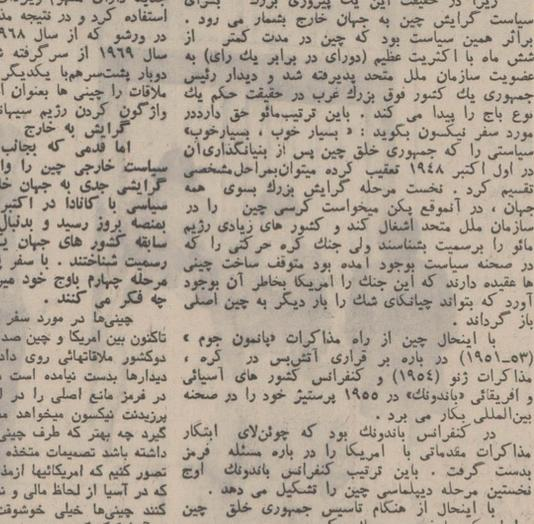 زیرا در حقیقت این یک پیروزی بزرگ برای
سیاست گرایش چین به جهان خارج بشمار می رود .
براثر همین سیاست بود که چین در مدت کمتر از
شش ماه با اکثریت عظیم (دورای در برابر یك رای) به
عضویت سازمان ملل متحد پذیرفته شد و دیدار رئیس
جمهوری یك کشور فوق بزرك غرب در حقیقت حکم یك
نوع باج را پیدا می کند . باین ترتیب‌مائو حق دارددر
مورد سفر نیکسون بگوید : « بسیار خوب ، بسیارخوب»
سیاستی را که جمهوری خلق چین پس از بنیانگذاری‌آن
در اول اکتبر ۱۹۴۸ تعقیب کرده میتوان‌بمراحل‌مشخصی
تقسیم کرد . نخست مرحله گرایش بزرك بسوی همه
جهان ، در آنموقع پکن میخواست کرسی چین را در
سازمان ملل متحد اشغال کند و کشور های زیادی رژیم
مائو را برسمیت بشناسند ولی جنك کره حرکتی را که
در صحنه سیاست بوجود آمده بود متوقف ساخت چینی
ها عقیده دارند که این جنك را امریکا بخاطر آن بوجود
آورد که بتواند چیانکای شك را بار دیگر به چین اصلی
باز گرداند .
با اینحال چین از راه مذاکرات «پانمون جوم »
(۵۳–۱۹۵۱) در باره بر قراری آتش‌بس در کره ،
مذاکرات ژنو (۱۹۵۴) و کنفرانس کشور های آسیائی
و افریقائی «باندونك» در ۱۹۵۵ پرستیژ خود را در صحنه
بین‌المللی بکار می برد .
در کنفرانس باندونك بود که چوئن‌لای ابتکار
مذاکرات مقدماتی با امریکا را در باره مسئله فرمز
بدست گرفت . باین ترتیب کنفرانس باندونك اوج
نخستین مرحله دیپلماسی چین را تشکیل می دهد .
با اینحال از هنگام تاسیس جمهوری خلق چین
استفاده کرد و در نتیجه
در ورشو که از سال ۱۹۶۸
سال ۱۹۶۹ از سرگرفته
دوبار پشت‌سرهم‌با یکدیگر
ملاقات را چینی ها بعنوان
واژگون کردن رژیم
گرایش به خارج
اما قدمی که بجانب
سیاست خارجی چین را
گرایشی جدی به جهان
سیاسی با کانادا در
بمنصه بروز رسید و
سابقه کشور های جهان
رسمیت شناختند . با سفر
مرحله چهارم باوج خود
چه فکر می کنند .
چینی‌ها در مورد سفر
تاکنون بین امریکا و چین
دوکشور ملاقاتهائی روی
دیدارها بدست نیامده است
در فرمز مانع اصلی را در
پرزیدنت نیکسون میخواهد
گیرد چه بهتر که طرف
داشته باشد تصمیمات متخذه
تصور کنیم که امریکائیها
که در آسیا از لحاظ مالی و
کنند چینی‌ها خیلی